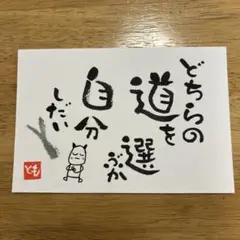 どちらの
道を
選ぶか
自分
しだい
とも